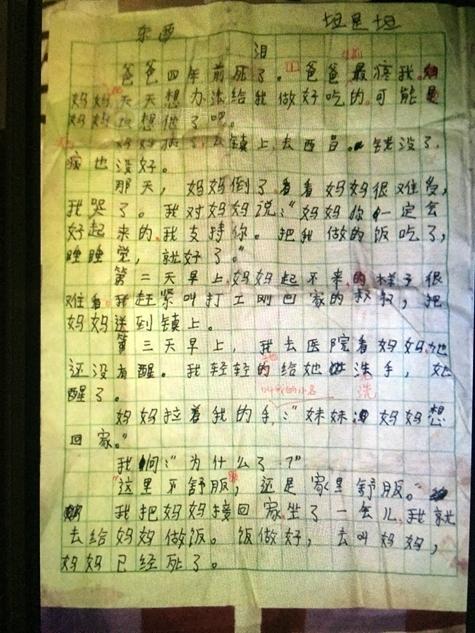 泪
爸爸四年前死了。爸爸最疼我,
妈妈天天想办法给我做好吃的。可能是
妈妈也想他了吧。
妈妈病了,去镇上,去西昌。钱没了,
病也没好。
那天,妈妈倒了。看看妈妈很难受,
我哭了。我对妈妈说:“妈妈你一定会
好起来的。我支持你。把我做的饭吃了,
睡睡觉,就好了。”
第二天早上,妈妈起不来,的样子很
难看。我赶紧叫打工刚回家的叔叔,把
妈妈送到镇上。
第三天早上,我去医院看妈妈,她
还没有醒。我轻轻的给她洗手,她
醒了。
叫我的小名
洗
妈妈拉着我的手:“妹妹,妈妈想
回家。”
我问:“为什么了?”
“这里不舒服,还是家里舒服。”
我把妈妈接回家,坐了一会儿,我就
去给妈妈做饭。饭做好,去叫妈妈,
妈妈已经死了。